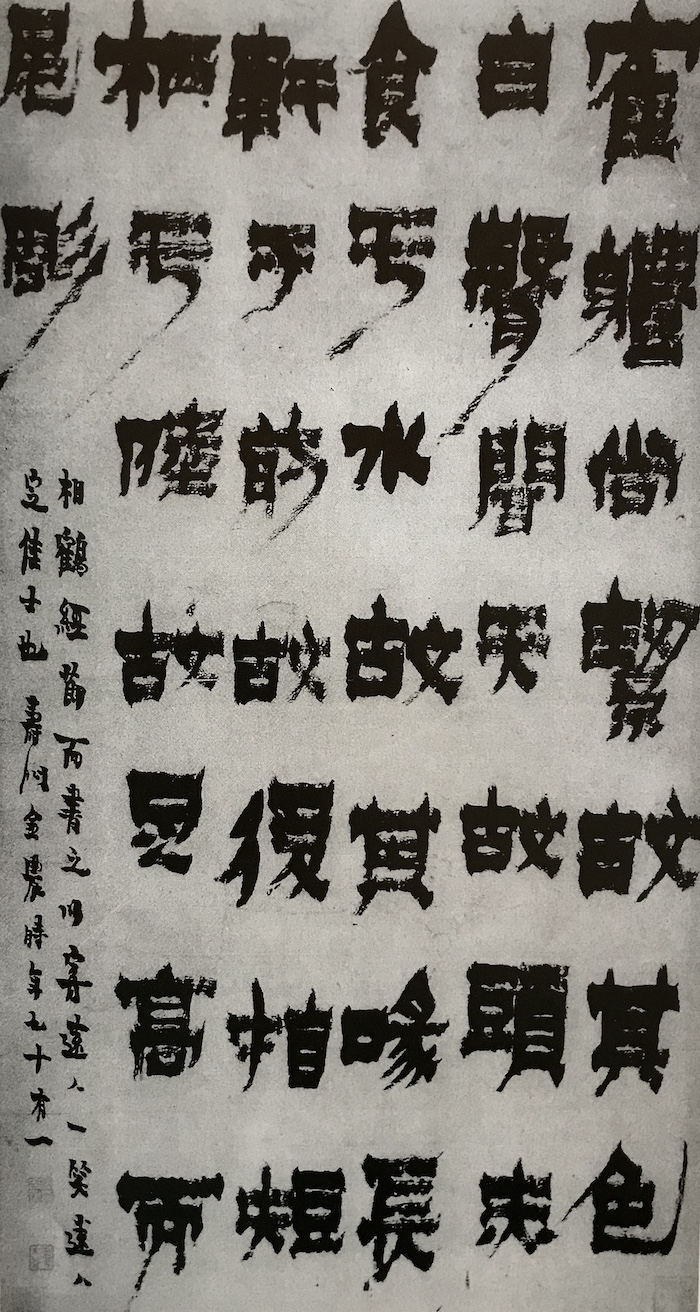 寉軆尚絜故其色
白聲聞天故頭赤
食亏水故其喙長
軒于前故後指短
栖亏陸故足高而
尾彫
相鶴經節而書之以寄遠人一笑遠人
定佳士也壽門金農時年七十有一